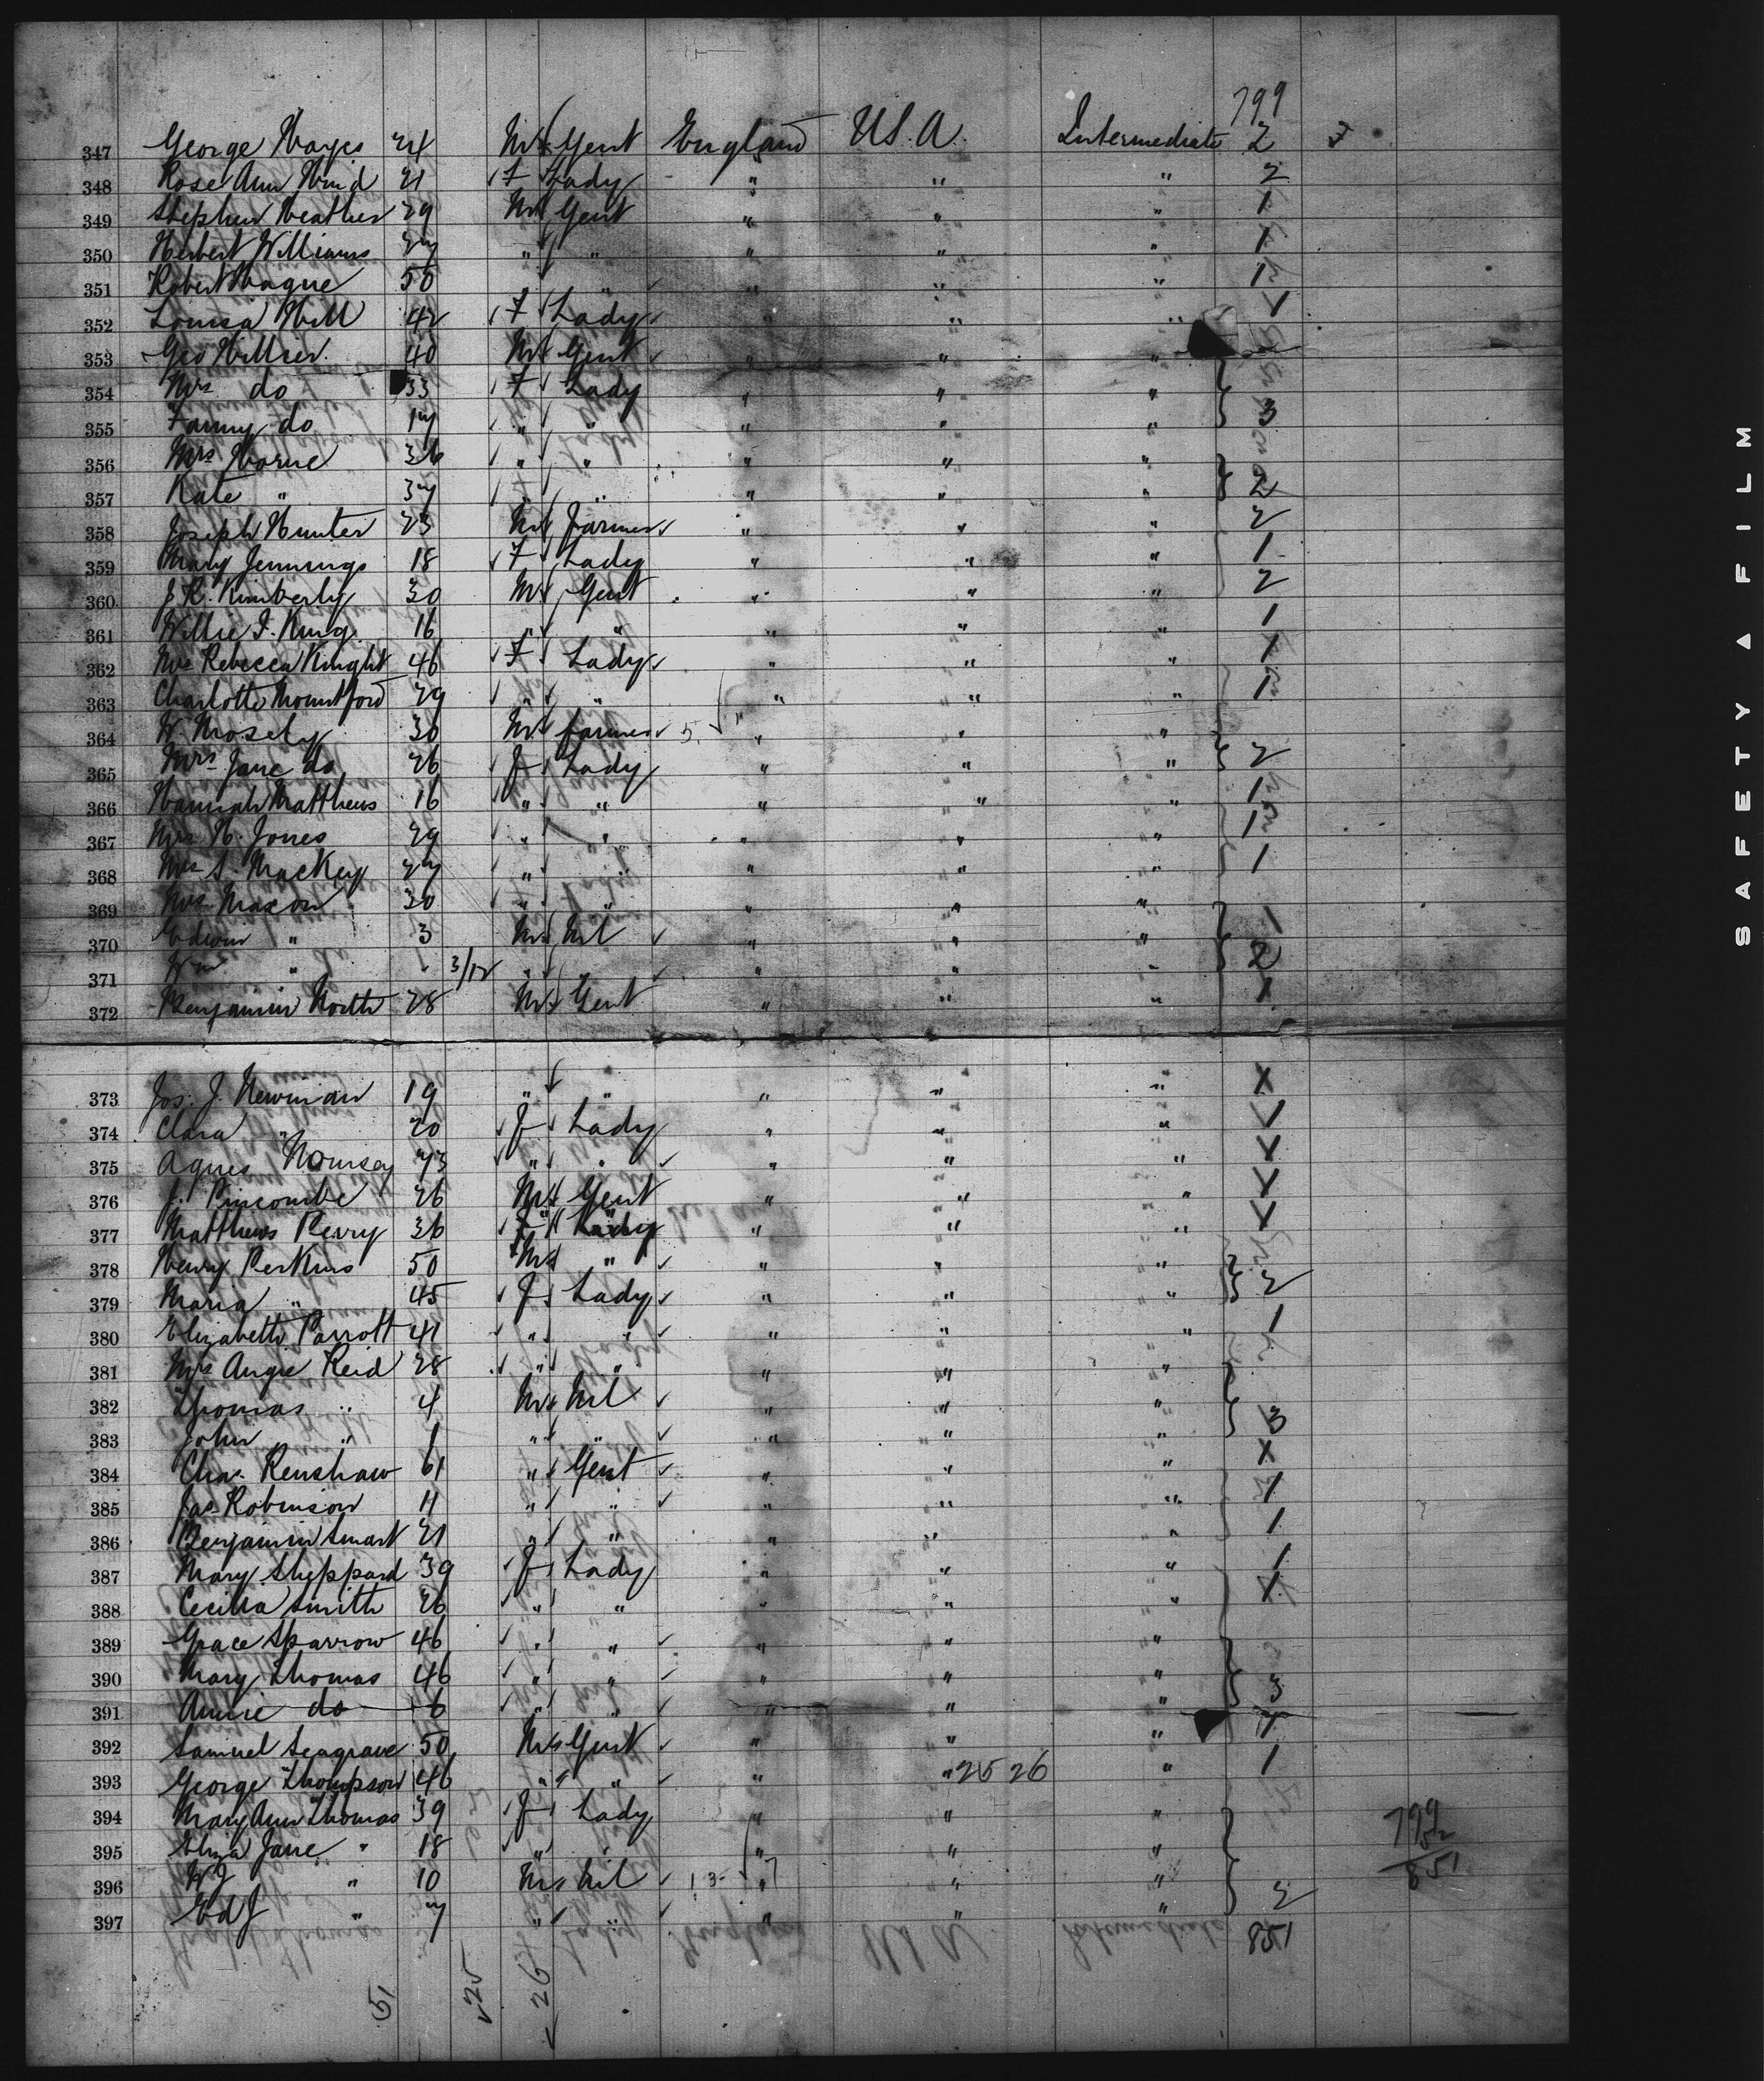 799
347 George Hayes 24 M Gent England U.S.A. Intermediate 2
348 Rose Ann Hind 21 F Lady " " " 2
349 Stephen Heather 29 M Gent " " " 1
350 Herbert Williams 37 " " " " " 1
351 Robert Hague 50 " " " " " 1
352 Louisa Hill 42 F Lady " " " 1
353 Geo Hillier 40 M Gent " " "
354 Mrs do 33 F Lady " " "
355 Fanny do 17 " " " " " 3
356 Mrs Horne 36 " " " " "
357 Kate " 37 " " " " " 2
358 Joseph Hunter 23 M Farmer " " " 2
359 Mary Jennings 18 F Lady " " " 1
360 J. R. Kimberly 30 M Gent " " " 2
361 Willie F. King 16 " " " " " 1
362 Mrs Rebecca Knight 46 F Lady " " " 1
363 Charlotte Mountford 29 " " " " " 1
364 W. Mosely 30 M farmer 5 " " "
365 Mrs Jane do 26 F Lady " " " 2
366 Hannah Matthews 16 " " " " " 1
367 Mrs H. Jones 29 " " " " " 1
368 Mrs S. Mackey 27 " " " " " 1
369 Mrs Maxon 30 " " " " " 1
370 Edwin " 3 M Nil " " "
371 Wm " 3/12 " " " " 2
372 Benjamin North 28 M Gent " " " 1
373 Jos. J. Newman 19 " " " " " 1
374 Clara " 20 F Lady " " " 1
375 Agnes 73 " " " " " 1
376 J. Pincombe 26 M Gent " " " 1
377 Matthews Perry 36 F Lady " " " 1
378 Henry Perkins 50 M " " " "
379 Maria " 45 F Lady " " " 2
380 Elizabeth Parrott 41 " " " " " 1
381 Mrs Angie Reid 28 " " " " "
382 Thomas " 4 M Nil " " "
383 John " 1 " " " " " 3
384 Chas. Renshaw 61 " Gent " " " 1
385 Jas. Robinson 11 " " " " " 1
386 Benjamin Smart 21 " " " " " 1
387 Mary Sheppard 39 F Lady " " " 1
388 Cecilia Smith 26 " " " " " 1
389 Grace Sparrow 46 " " " " "
390 Mary Thomas 46 " " " " " 3
391 Annie do 6 " " " " "
392 Samuel Seagrave 50 M Gent " " " 1
393 George Thompson 46 " " " " 25 26 " 1
394 Mary Ann Thomas 39 F Lady " " " 799
395 Eliza Jane " 18 " " " " 52
396 W J " 10 M Nil 13 " " " 851
397 Ed J " 7 " " " " " 2
851
51 25 26
SAFETY ▲ FILM